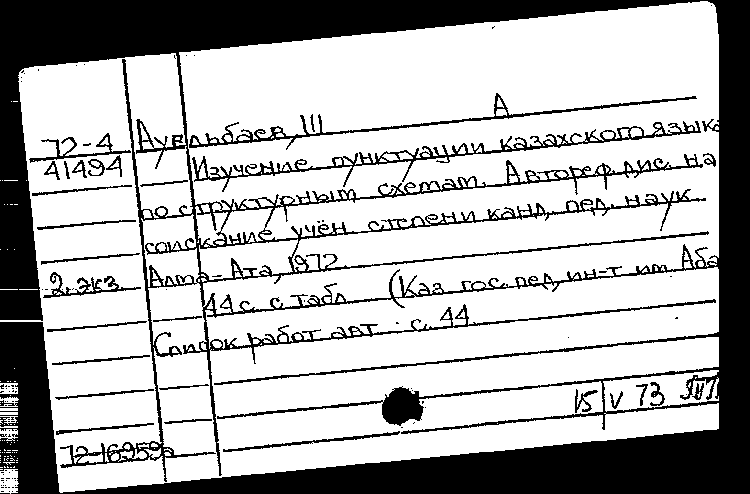 А
72-4 Ауельбаев, Ш
41494 Изучение пунктуации казахского языка
по структурным схемам. Автореф. дис. на
соискание учён. степени канд. пед. наук.
2. экз. Алма-Ата, 1972.
44 с. с табл. (Каз. гос. пед. ин-т им. Аба
Список работ авт.: с. 44.
15/V 73
72-16959а